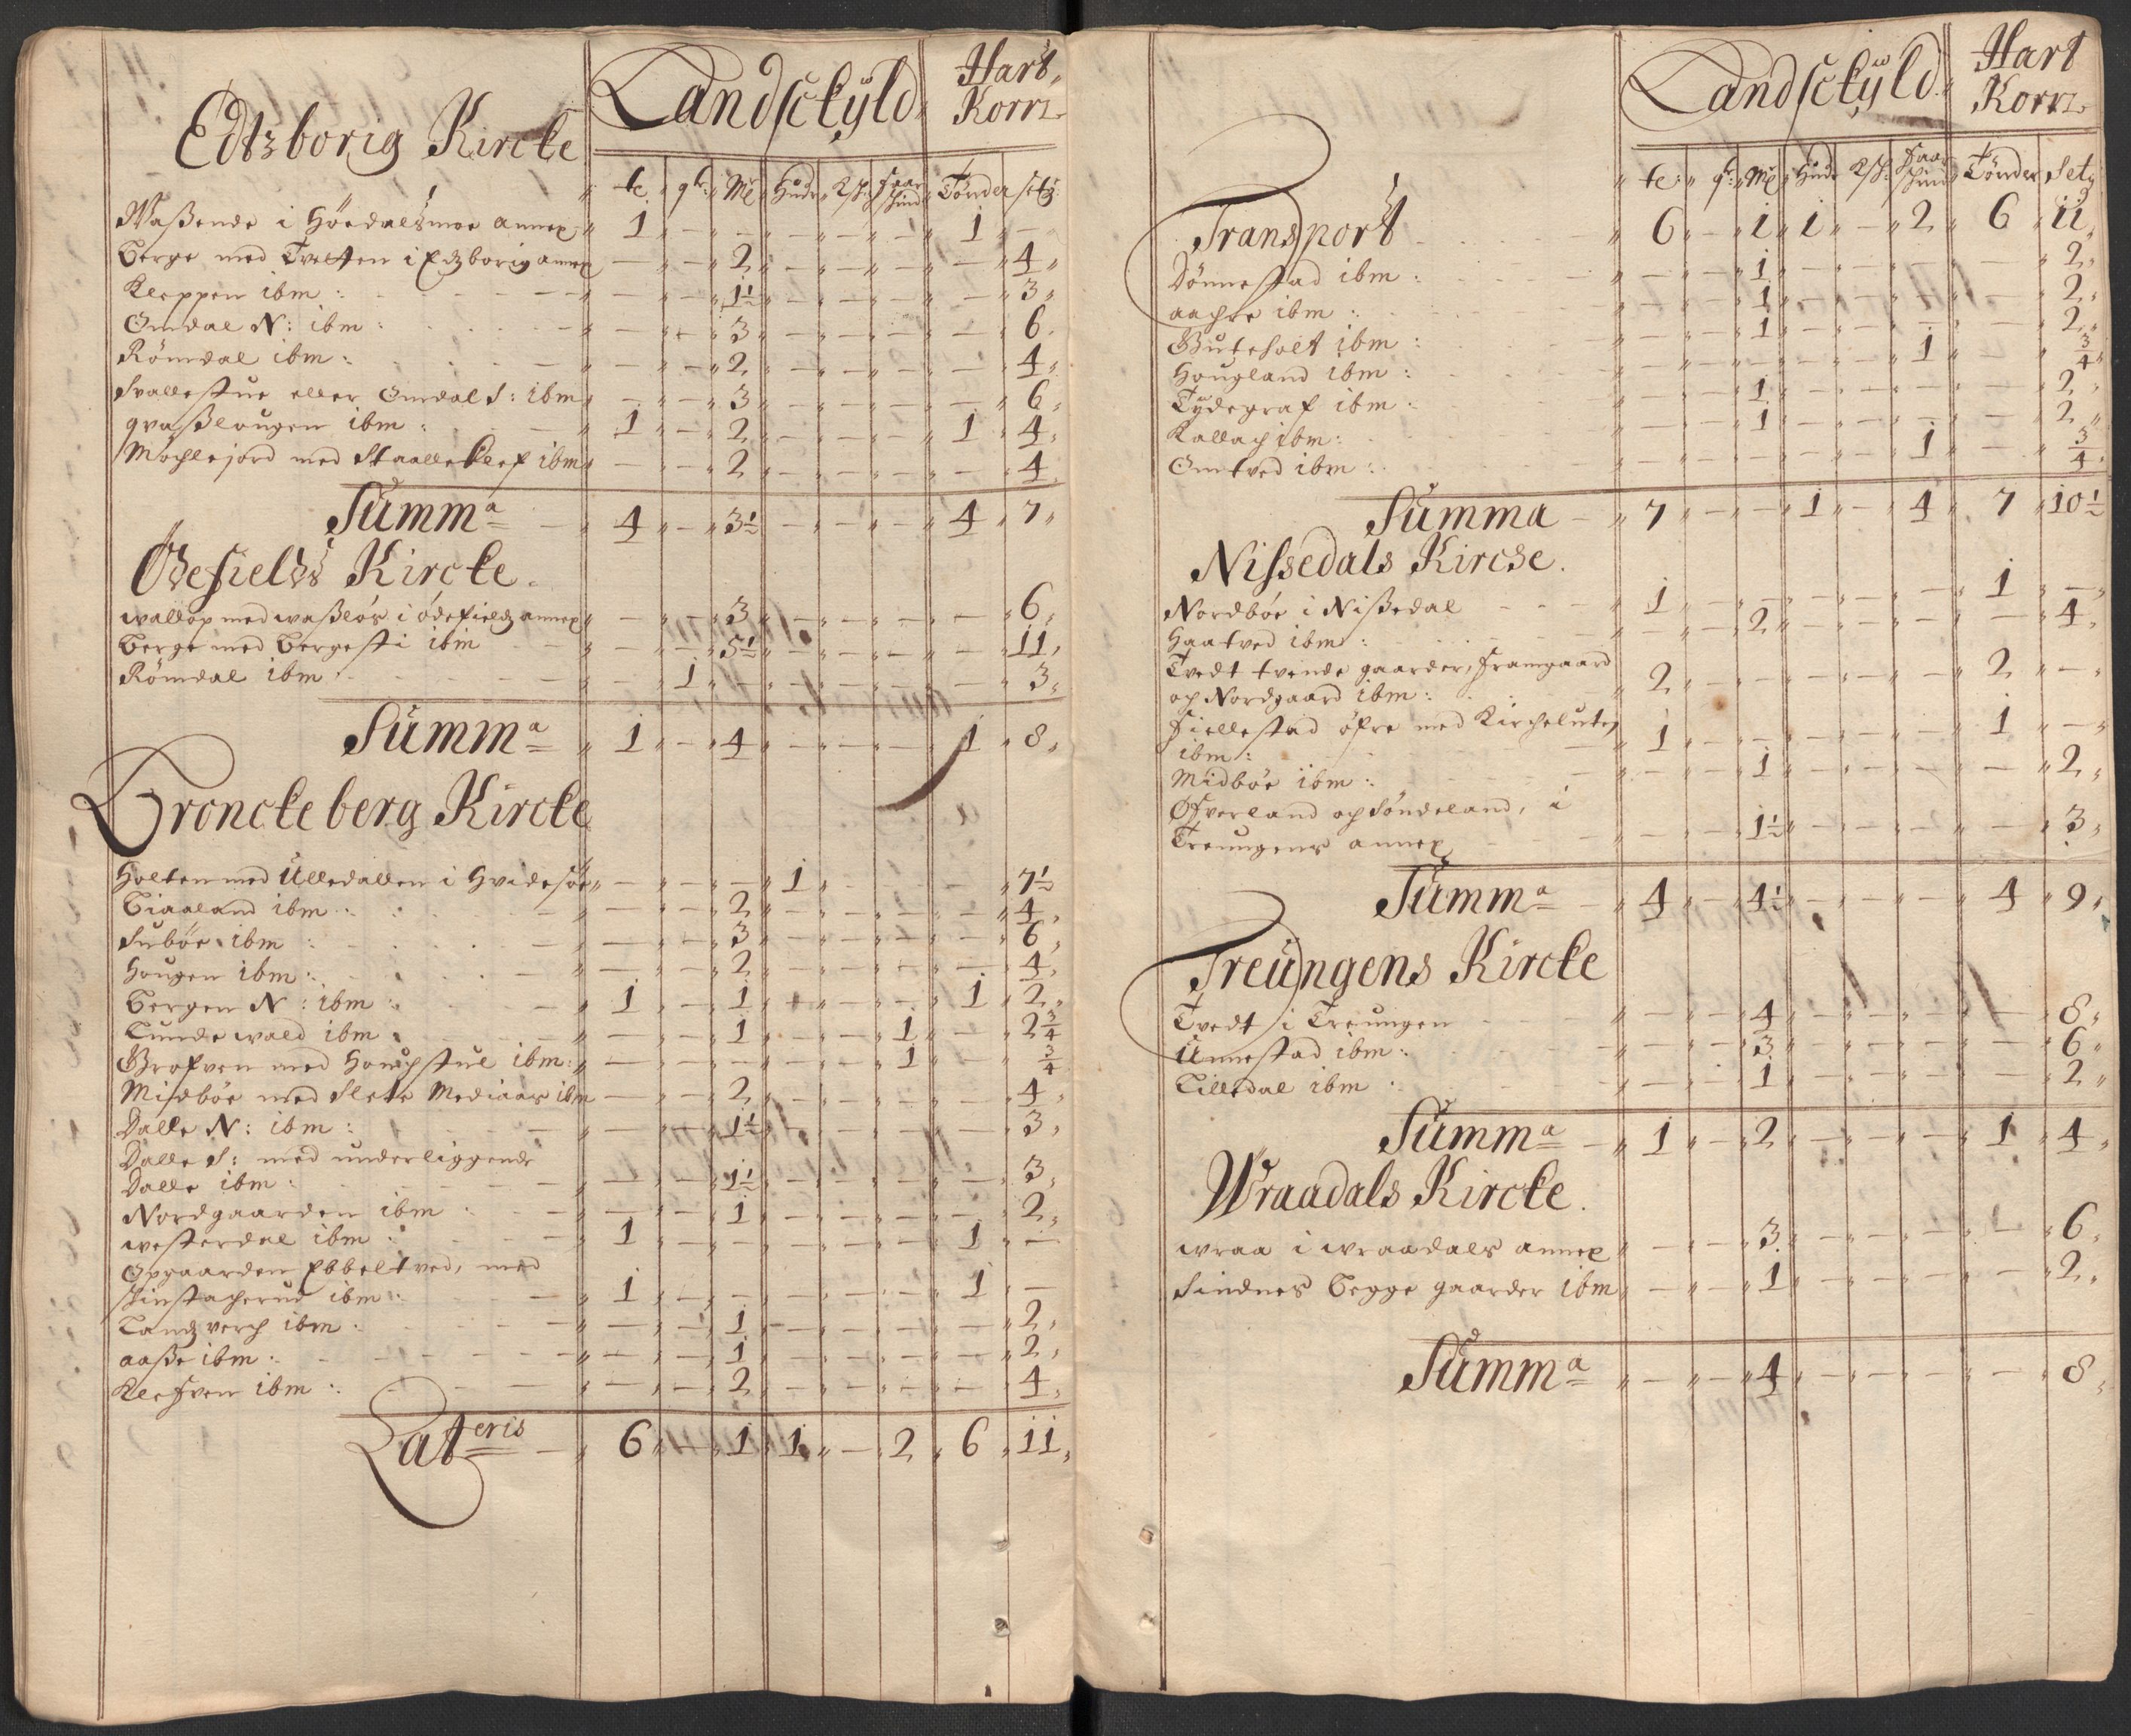 Landsckyld Hart Korn
Edtzborig Kircke
te qr: Mk Hude Rß: faar skind Tønder setg
Waßende i Höedalsmoe annex 1 - - - - - 1 -
Berge med Tvetten i Edzborig annex - - 2 - - - - 4
Kleppen ibm: - - 1½ - - - - 3
Omdal N: ibm: - - 3 - - - - 6
Römdal ibm: - - 2 - - - - 4
Svallestue eller Omdal S: ibm - - 3 - - - - 6
qvaßlougen ibm: 1 - 2 - - - 1 4
Mochlejord med Staalleklef ibm - - 2 - - - - 4
Summa 4 - 3½ - - - 4 7
Kircke
wallop med waßlös i ödefieldz annex - - 3 - - - - 6
Berge med Bergesti ibm - - 5½ - - - - 11
Römdal ibm: - 1 - - - - - 3
Summa 1 - 4 - - - 1 8
Broncke berg Kircke
Holten med Ulledallen i Hvidesöe - - - 1 - - - 7½
Biaaland ibm: - - 2 - - - - 4
Suböe ibm: - - 3 - - - - 6
Hougen ibm: - - 2 - - - - 4
Bergen N: ibm: 1 - 1 - - - 1 2
Lundewald ibm: - - 1 - - 1 - 2¾
Grofven med Houchstul ibm: - - - - - 1 - ¾
Midböe med Slete Mediaas ibm - - 2 - - - - 4
Dalle N: ibm: - - 1½ - - - - 3
Dalle S: med underliggende
Dalle ibm: - - 1½ - - - - 3
Nordgaarden ibm: - - 1 - - - - 2
westerdal ibm: 1 - - - - - 1 -
Opgaarden Ebbeltved, med
skinstacherud ibm: 1 - - - - - 1 -
Langverch ibm: - - 1 - - - - 2
aaße ibm: - - 1 - - - - 2
Klefven ibm: - - 2 - - - - 4
Lateris 6 - 1 1 - 2 6 11
Landsckyld Hart Korn
te: qr: Mk Hude Rß: faar skind Tønder Setg
Transport 6 - 1 1 - 2 6 11
Dönnestad ibm: - - 1 - - - - 2
aachre ibm: - - 1 - - - - 2
Buteholt ibm: - - 1 - - - - 2
Hougland ibm: - - - - - 1 - ¾
Tydegraf ibm: - - 1 - - - - 2
Kallach ibm: - - 1 - - - - 2
Omtved ibm: - - - - - 1 - ¾
Summa 7 - - 1 - 4 7 10½
Nissedals Kircke.
Nordböe i Nißedal 1 - - - - - 1 -
Haatved ibm: - - 2 - - - - 4
Tvedt tvende gaarder, Framgaard
och Nordgaard ibm: 2 - - - - - 2 -
Fiellestad öfre med Kirchelutes
ibm: 1 - - - - - 1 -
Midböe ibm: - - 1 - - - - 2
Öfverland och Söndeland, i
Treungens annex - - 1½ - - - - 3
Summa 4 - 4½ - - - 4 9
Treungens Kircke
Tvedt i Treungen - - 4 - - - - 8
Unnestad ibm: - - 3 - - - - 6
Lilledal ibm: - - 1 - - - - 2
Summa 1 - 2 - - - 1 4
Wraadals Kircke.
wraa i wraadals annex - - 3 - - - - 6
Sindnes begge gaarder ibm - - 1 - - - - 2
Summa - - 4 - - - - 8